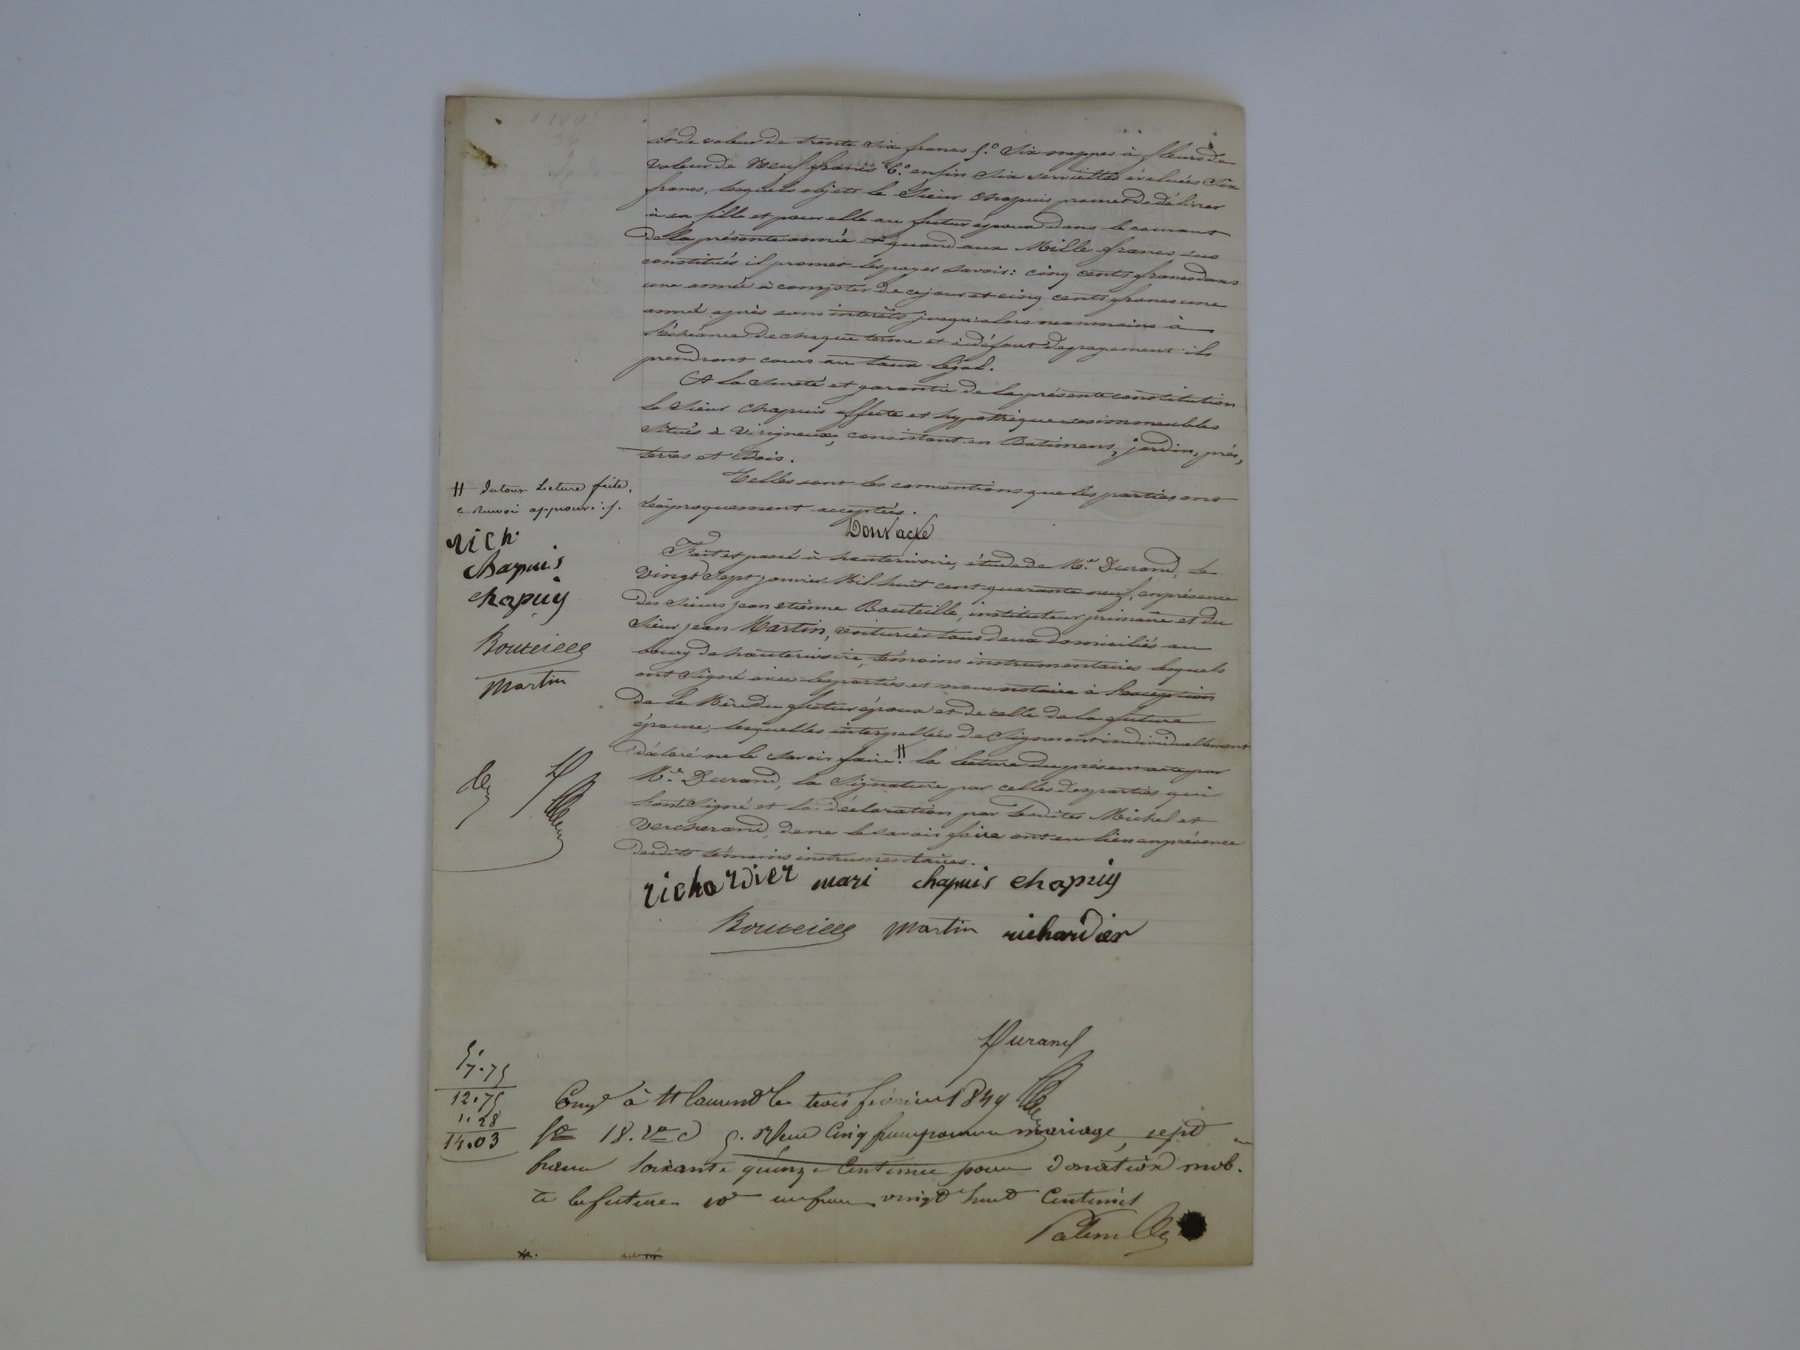 et de valeur de trente six francs 5.o Six nappes à fleurs de
valeur de Neuf francs 6.o enfin Six serviettes évaluées Six
francs, lesquels objets le Sieur Chapuis promet de délivrer
à sa fille et pour elle au futur époux dans le courant
de la présente année & quand aux Mille francs sus
constitués il promet les payer savoir: cinq cents francs dans
une année à compter de ce jour et cinq cents francs une
année après sans intérêts jusqu'alors néanmoins à
l'échéance de chaque terme et à défaut de payement ils
prendront cours au taux légal.
A la sureté et garantie de la présente constitution
le Sieur Chapuis affecte et hypothèque ses immeubles
situés à Virigneux, consistant en Batimens, jardin, prés,
terres et Bois.
Telles sont les conventions que les parties ont
réciproquement acceptées.
Dont acte
Fait et passé à hauterivoire, étude de Me. Durand, le
Vingt Sept janvier Mil huit cent quarante neuf, en présence
des sieurs jean etienne Bouteille, instituteur primaire et du
Sieur jean Martin, voiturier tous deux domiciliés au
bourg de hauterivoire, témoins instrumentaires lesquels
ont signé avec les parties et nous notaire à l'exception
de la Mère du futur époux et de celle de la future
épouse, lesquelles interpellées de Signer ont individuellement
déclaré ne le savoir faire. # la lecture du présent acte par
Me. Durand, la Signature par celles des parties qui
l'ont signé et la déclaration par lesdites Michel et
Vercherand, de ne le savoir faire ont eu lieu en présence
desdits témoins instrumentaires.
# lecture faite,
renvoi approuvé
rich.
chapuis
chapuy
Bouteille
Martin
richardier mari chapuis chapuy
Bouteille Martin richardier
Durand
5.
7.75
12.75
1.28
14.03
à St Laurent le trois février 1849
fo 18. vo c 5. Reçu Cinq francs pour mariage, sept
francs Soixante quinze Centimes pour donation mob.
à la future Xe un franc vingt huit Centimes